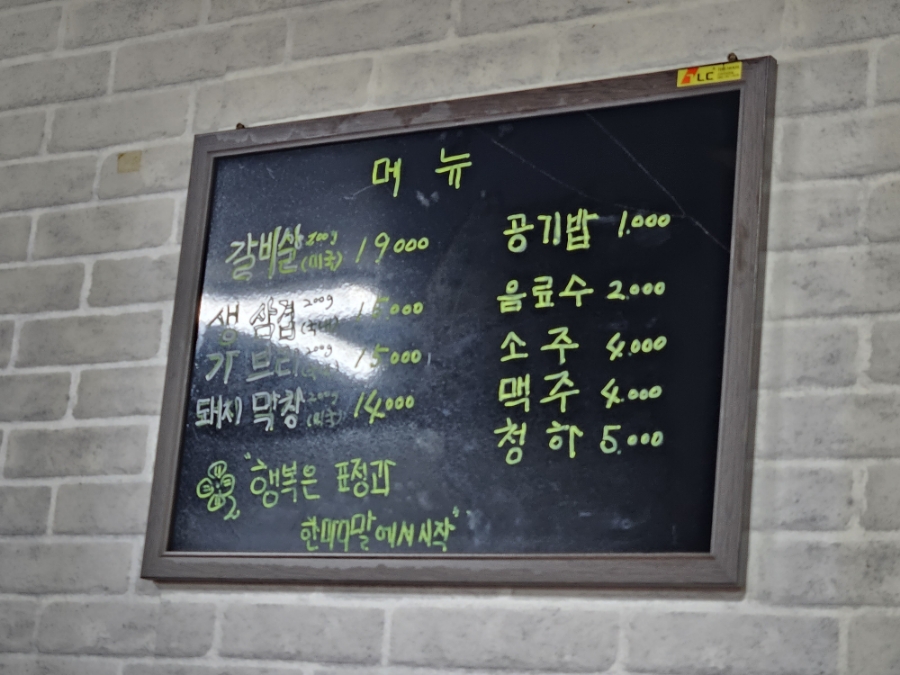 메 뉴
갈비살 200g (미국) 19000
생 삼겹 200g (국내) 15000
가브리 200g 15000
돼지 막창 200g (외국) 14000
공기밥 1.000
음료수 2.000
소 주 4.000
맥 주 4.000
청 하 5.000
"행복은 표정과
한마디말에서시작"
LC